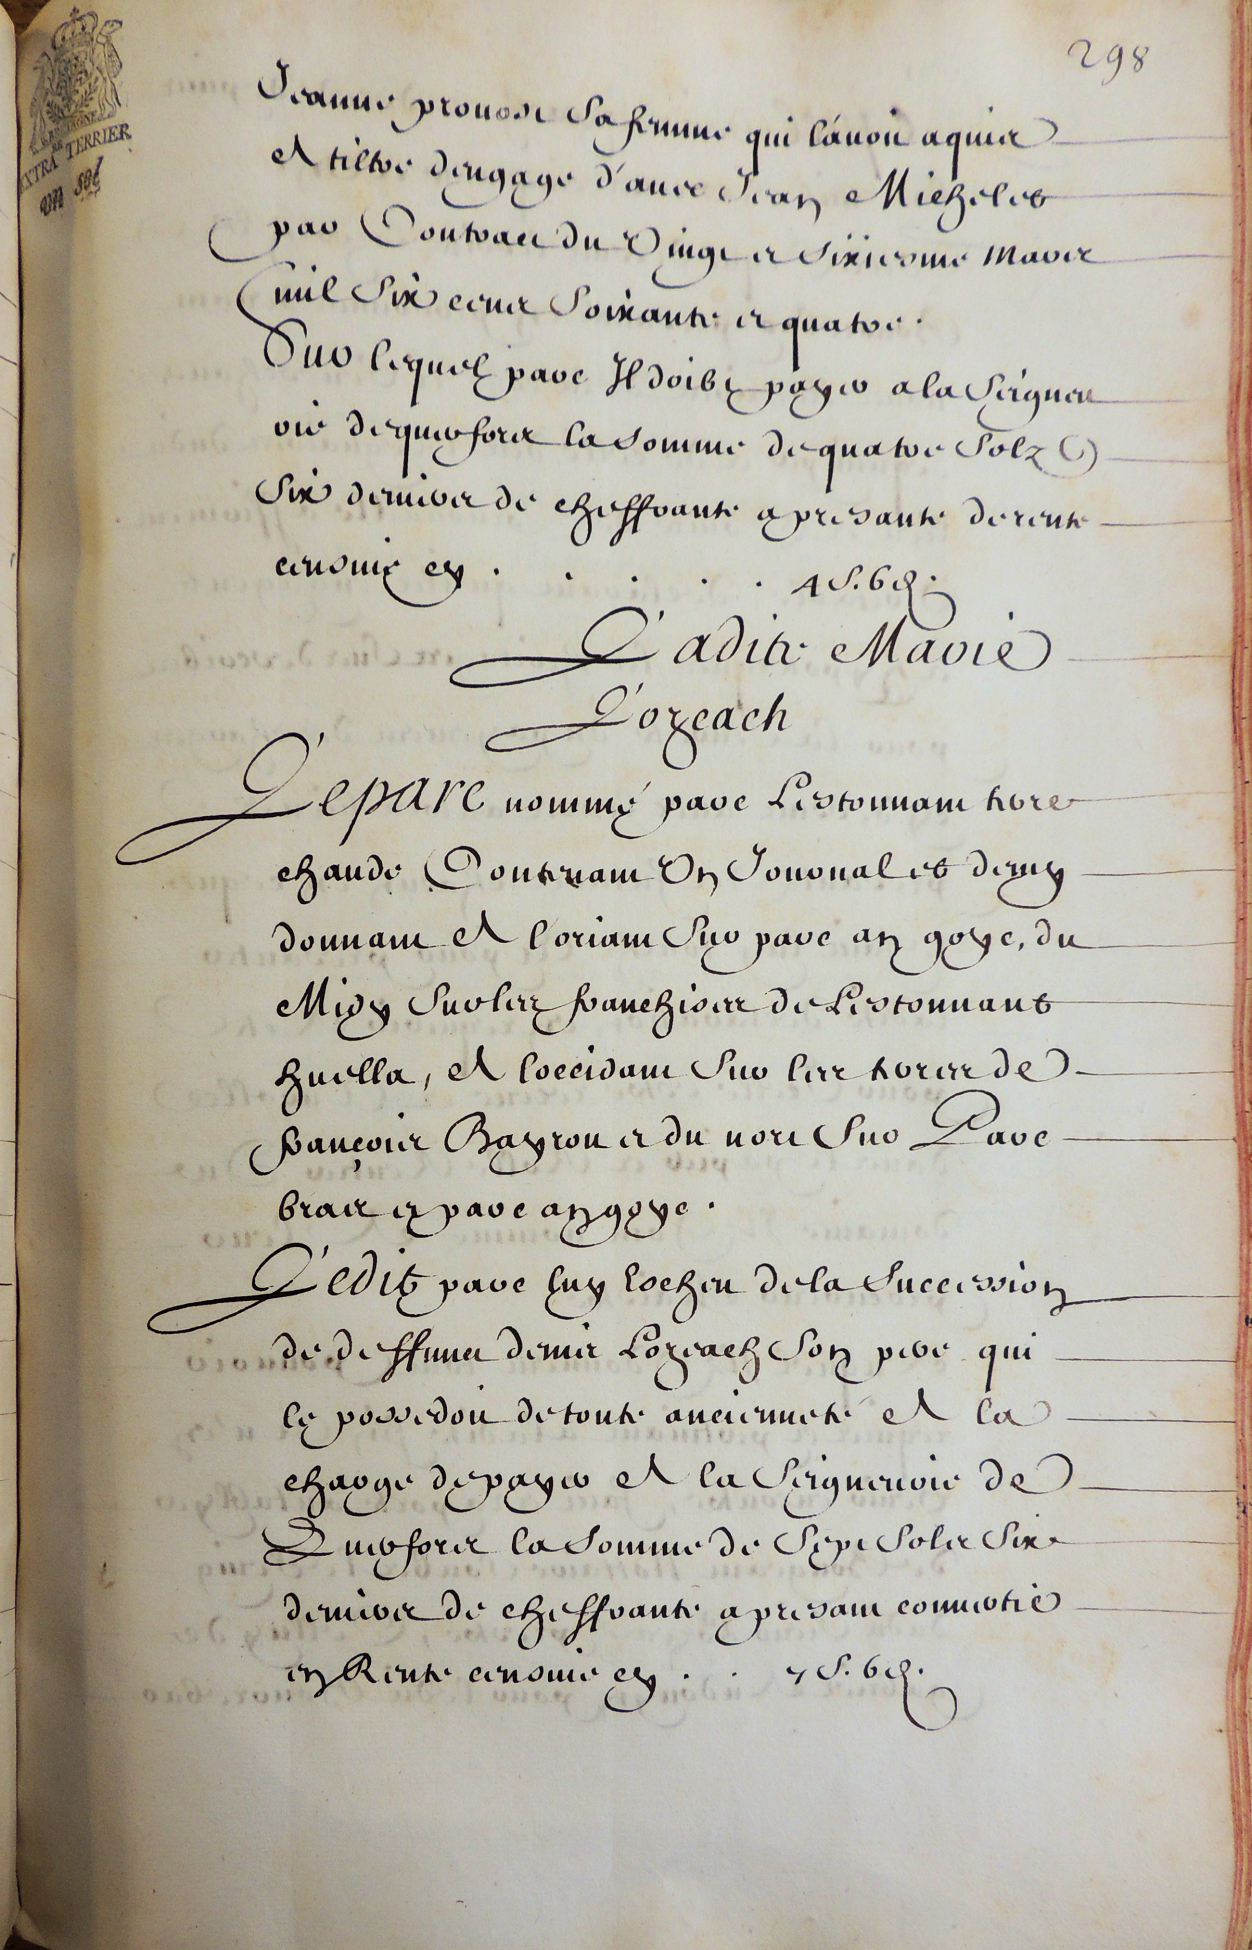 298
BRETAGNE
EXTRA TERRIER
un sol
Jeanne prouost sa femme qui l'auoit aquis
a tiltre d'engage d'auec Jean Michelet
par Contract du Vingt et sixiesme mars
mil six cents soixante et quatre.
Sur lequel parc Il doibt payer a la Seigneu
rie de querforn la somme de quatre solz
six deniers de cheffrante a presante de rente
censiue cy . . . . . 4 s. 6 d.
Ladite Marie
Lozeach
Le parc nommé parc Lestonnam terre
chaude Contenant Un Journal et demy
donnant a l'oriant sur parc an goye, du
Midy sur les franchises de Lestonnant
huella, a loccidant sur les terres de
françois Bayron et du nort sur Parc
bras et parc an goye.
Ledit parc luy Escheu de la Succession
de deffunct denis Lozeach son pere qui
le possedoit de toute ancienneté a la
charge de payer a la Seigneurie de
Querforn la somme de Sept sols six
deniers de cheffrante a presant conuertie
en Rente censiue cy . . 7 s. 6 d.